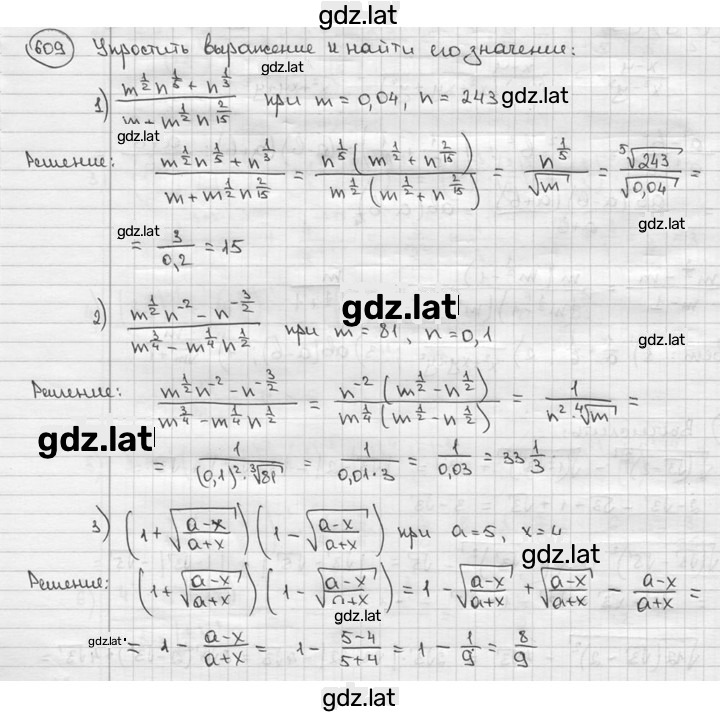 gdz.lat
609 Упростить выражение и найти его значение:
gdz.lat
1) (m^(1/2) n^(1/5) + n^(1/3)) / (m + m^(1/2) n^(2/15)) при m = 0,04, n = 243 gdz.lat
gdz.lat
Решение: (m^(1/2) n^(1/5) + n^(1/3)) / (m + m^(1/2) n^(2/15)) = n^(1/5) (m^(1/2) + n^(2/15)) / (m^(1/2) (m^(1/2) + n^(2/15))) = n^(1/5) / √m = ⁵√243 / √0,04 =
gdz.lat
= 3 / 0,2 = 15
2) (m^(1/2) n^(-2) - n^(-3/2)) / (m^(3/4) - m^(1/4) n^(1/2)) при m = 81, n = 0,1
gdz.lat
gdz.lat
Решение: (m^(1/2) n^(-2) - n^(-3/2)) / (m^(3/4) - m^(1/4) n^(1/2)) = n^(-2) (m^(1/2) - n^(1/2)) / (m^(1/4) (m^(1/2) - n^(1/2))) = 1 / (n² · ⁴√m) =
gdz.lat
= 1 / ((0,1)² · ³√81) = 1 / (0,01·3) = 1 / 0,03 = 33 1/3
3) (1 + √((a-x)/(a+x))) (1 - √((a-x)/(a+x))) при a=5, x=4
gdz.lat
Решение: (1 + √((a-x)/(a+x))) (1 - √((a-x)/(a+x))) = 1 - √((a-x)/(a+x)) + √((a-x)/(a+x)) - (a-x)/(a+x) =
gdz.lat
gdz.lat
= 1 - (a-x)/(a+x) = 1 - (5-4)/(5+4) = 1 - 1/9 = 8/9
gdz.lat